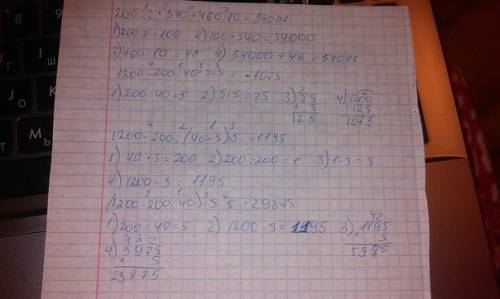 200:2*540+460:10=54046
1)200:2=100 2)100*540=54000
3)460:10=46 4)54000+46=54046
1200-200:40*5*5=1075
1)200:40=5 2)5*5=25 3)25 4)1200
*5 -125
125 1075
1200-200:(40*5)*5=1195
1)40*5=200 2)200:200=1 3)1*5=5
4)1200-5=1195
(1200-200:40)*5*5=29875
1)200:40=5 2)1200-5=1195 3)1195
4)5975 *5
*5 5975
29875